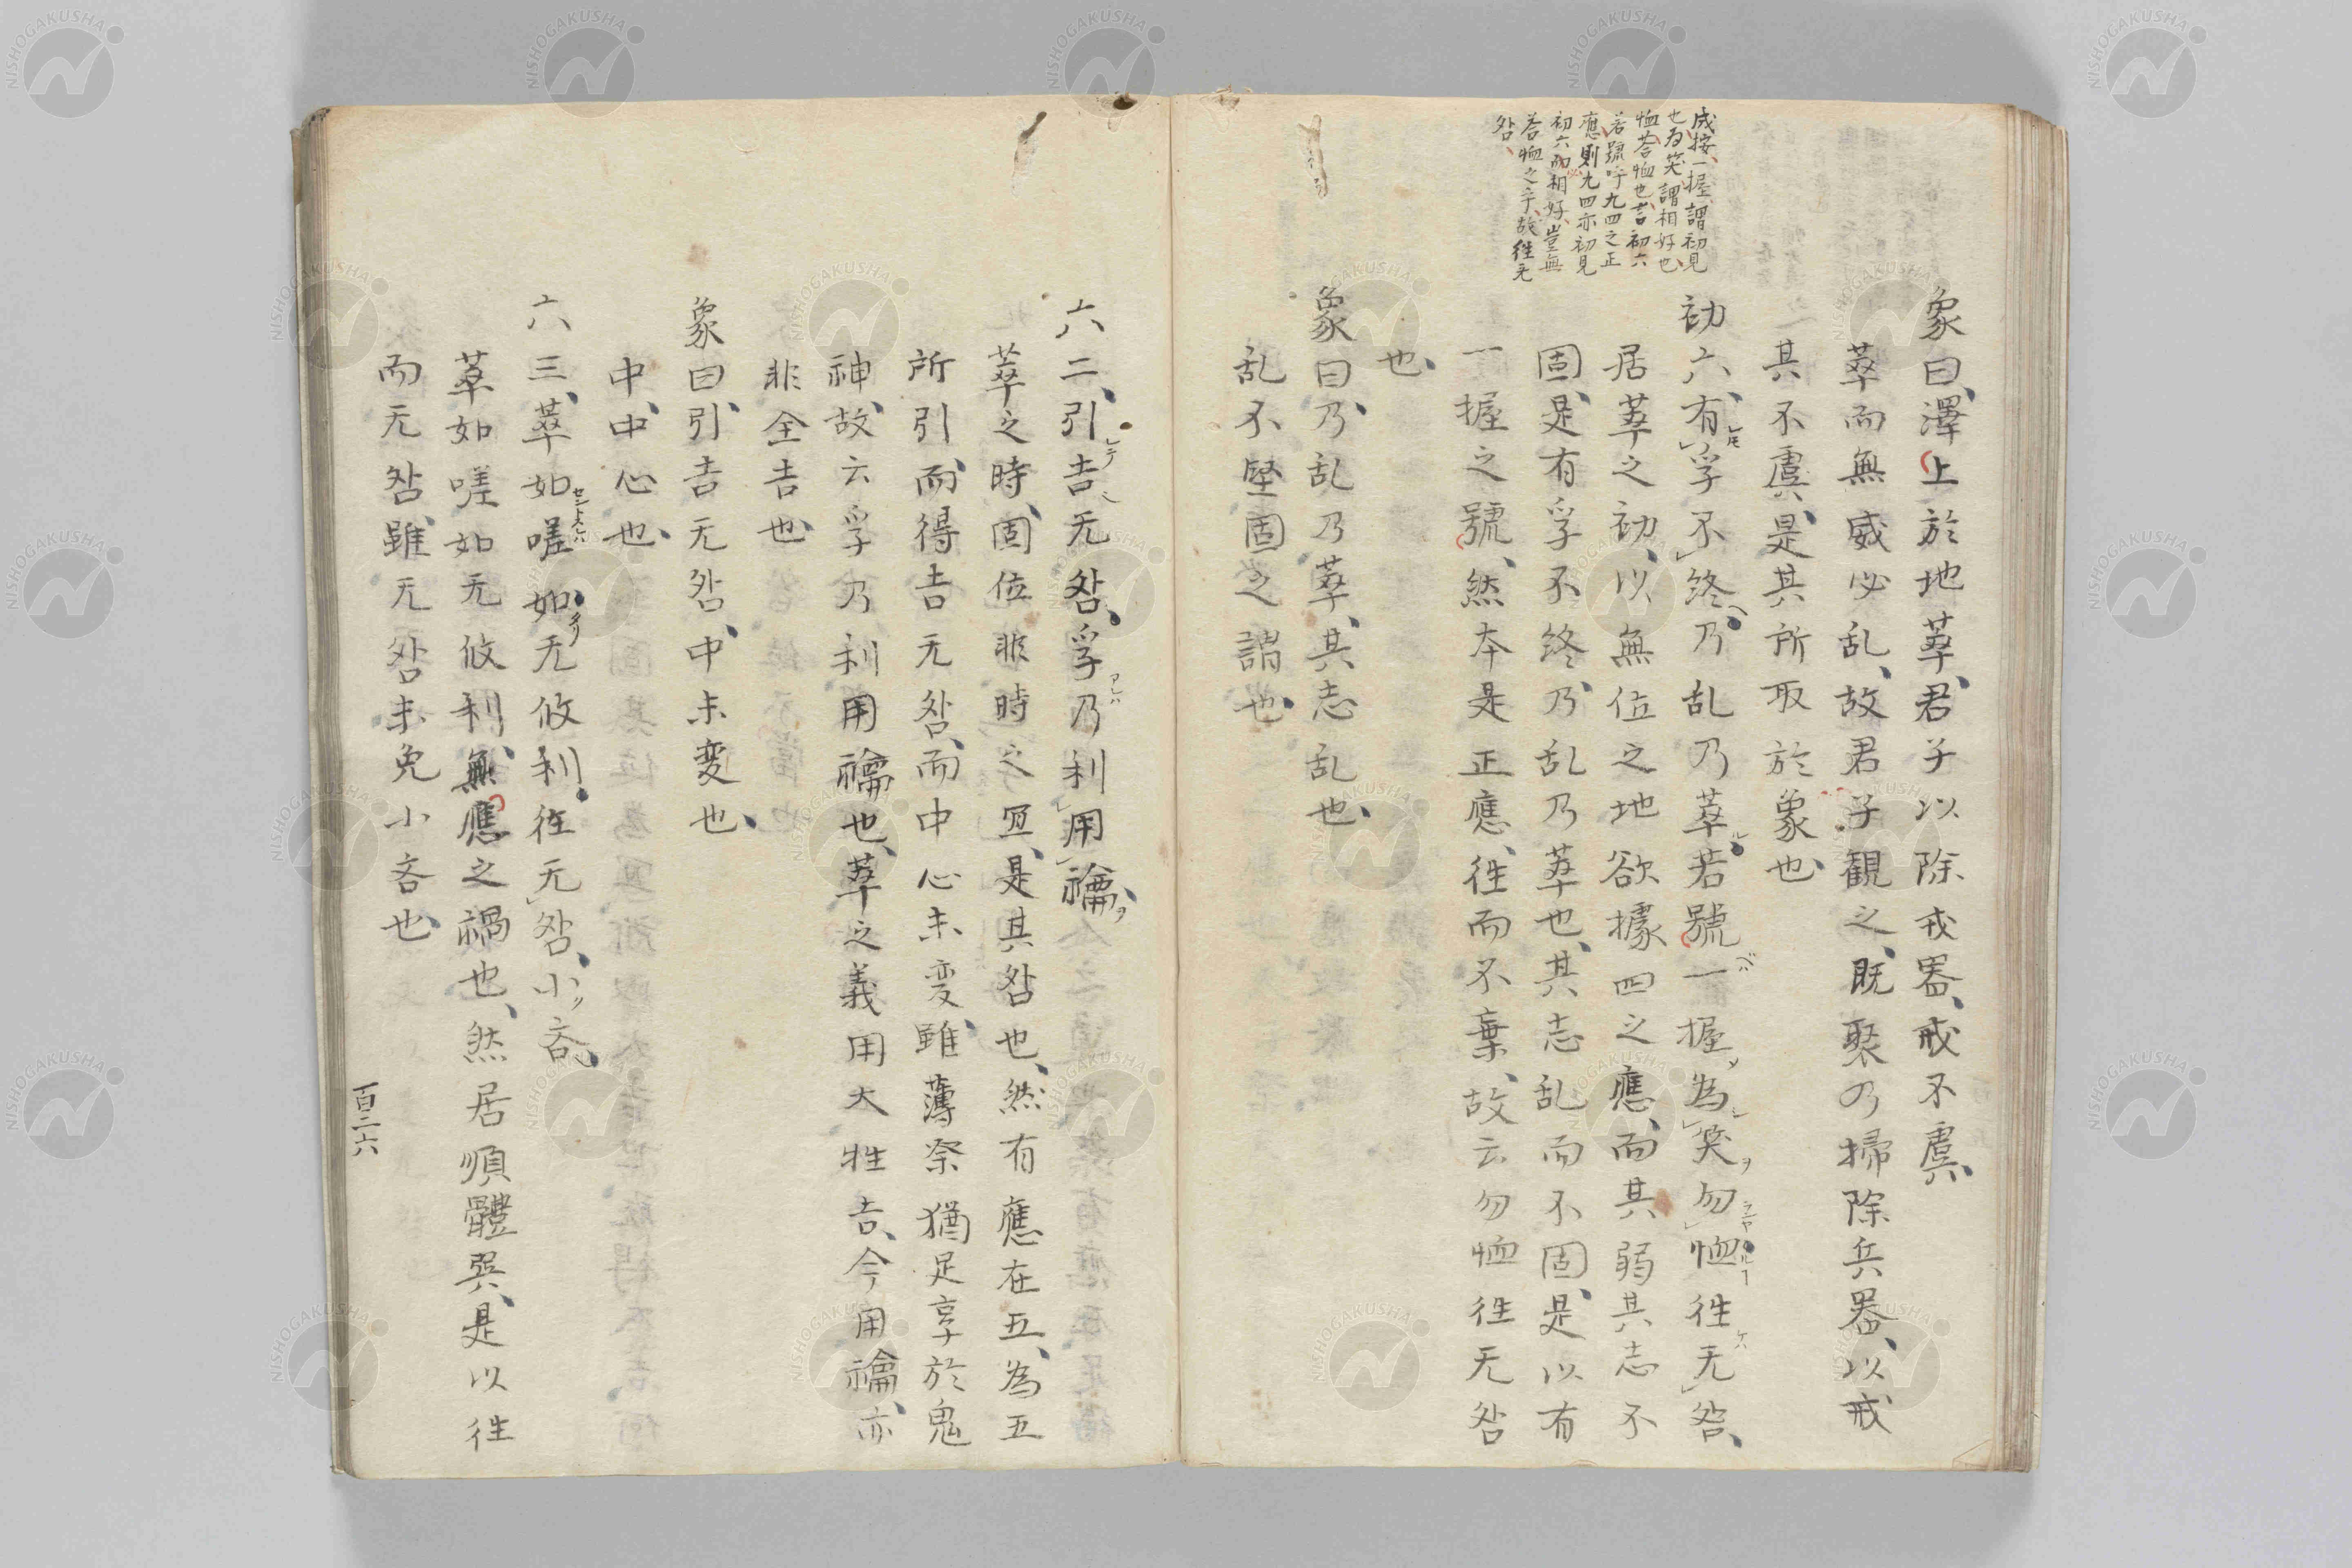 成按、一握、謂初見
也、為笑、謂相好也、
恤、答恤也、言初六
若號呼九四之正
應則九四亦初見
初六而相好、豈無
答恤之乎、故往无
咎、
象曰、澤上於地萃、君子以除戎器、戒不虞、
萃而無威必乱、故君子観之、既聚乃掃除兵器、以戒
其不虞、是其所取於象也、
初六、有孚不終、乃乱乃萃、若號一握為笑、勿恤、往无咎、
居萃之初、以無位之地欲據四之應、而其弱其志不
固、是有孚不終、乃乱乃萃也、其志乱而不固、是以有
一握之號、然本是正應、往而不棄、故云勿恤往无咎
也、
象曰、乃乱乃萃、其志乱也、
乱不堅固之謂也、
六二、引吉、无咎、孚乃利用禴、
萃之時、固位非時之宜、是其咎也、然有應在五、為五
所引、而得吉无咎、而中心未変、雖薄祭猶足享於鬼
神、故云孚乃利用禴也、萃之義用大牲吉、今用禴、亦
非全吉也、
象曰、引吉无咎、中未変也、
中、中心也、
六三、萃如嗟如、无攸利、往无咎、小吝、
萃如嗟如无攸利、無應之禍也、然居順體巽、是以往
而无咎、雖无咎未免小吝也、
百二六
NISHOGAKUSHA